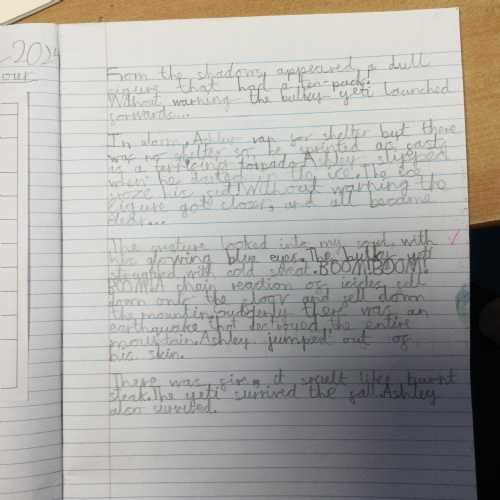 2024
our
From the shadows, appeared a dull
figure that had a ten-pack.
Without warning the bulky yeti launched
forwards...
In alarm, Ashley ran for shelter but there
was no shelter so he sprinted as fast
is a terrifying tornado. Ashley slipped
when he darted in the ice. The ice
froze his feet! Without warning the
figure got closer, and all became
clear...
The creature looked into my soul with
his glowing blue eyes. The bulky yeti
struggled with cold sweat. BOOM! BOOM!
BOOM! A chain reaction of icicles fell
down onto the floor and fell down
the mountin. Suddenly there was an
earthquake that destroyed the entire
mountain. Ashley jumped out of
his skin.
There was fire, it smelt like burnt
steak. The yeti survived the fall. Ashley
also survived.